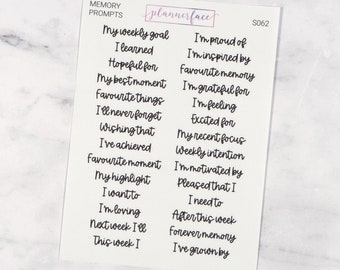 MEMORY
PROMPTS
plannerface
S062
My weekly goal
I learned
Hopeful for
My best moment
Favourite things
I'll never forget
Wishing that
I've achieved
Favourite moment
My highlight
I want to
I'm loving
Next week I'll
this week I
I'm proud of
I'm inspired by
Favourite memory
I'm grateful for
I'm feeling
Excited for
My recent focus
Weekly intention
I'm motivated by
Pleased that I
I need to
After this week
Forever memory
I've grown by